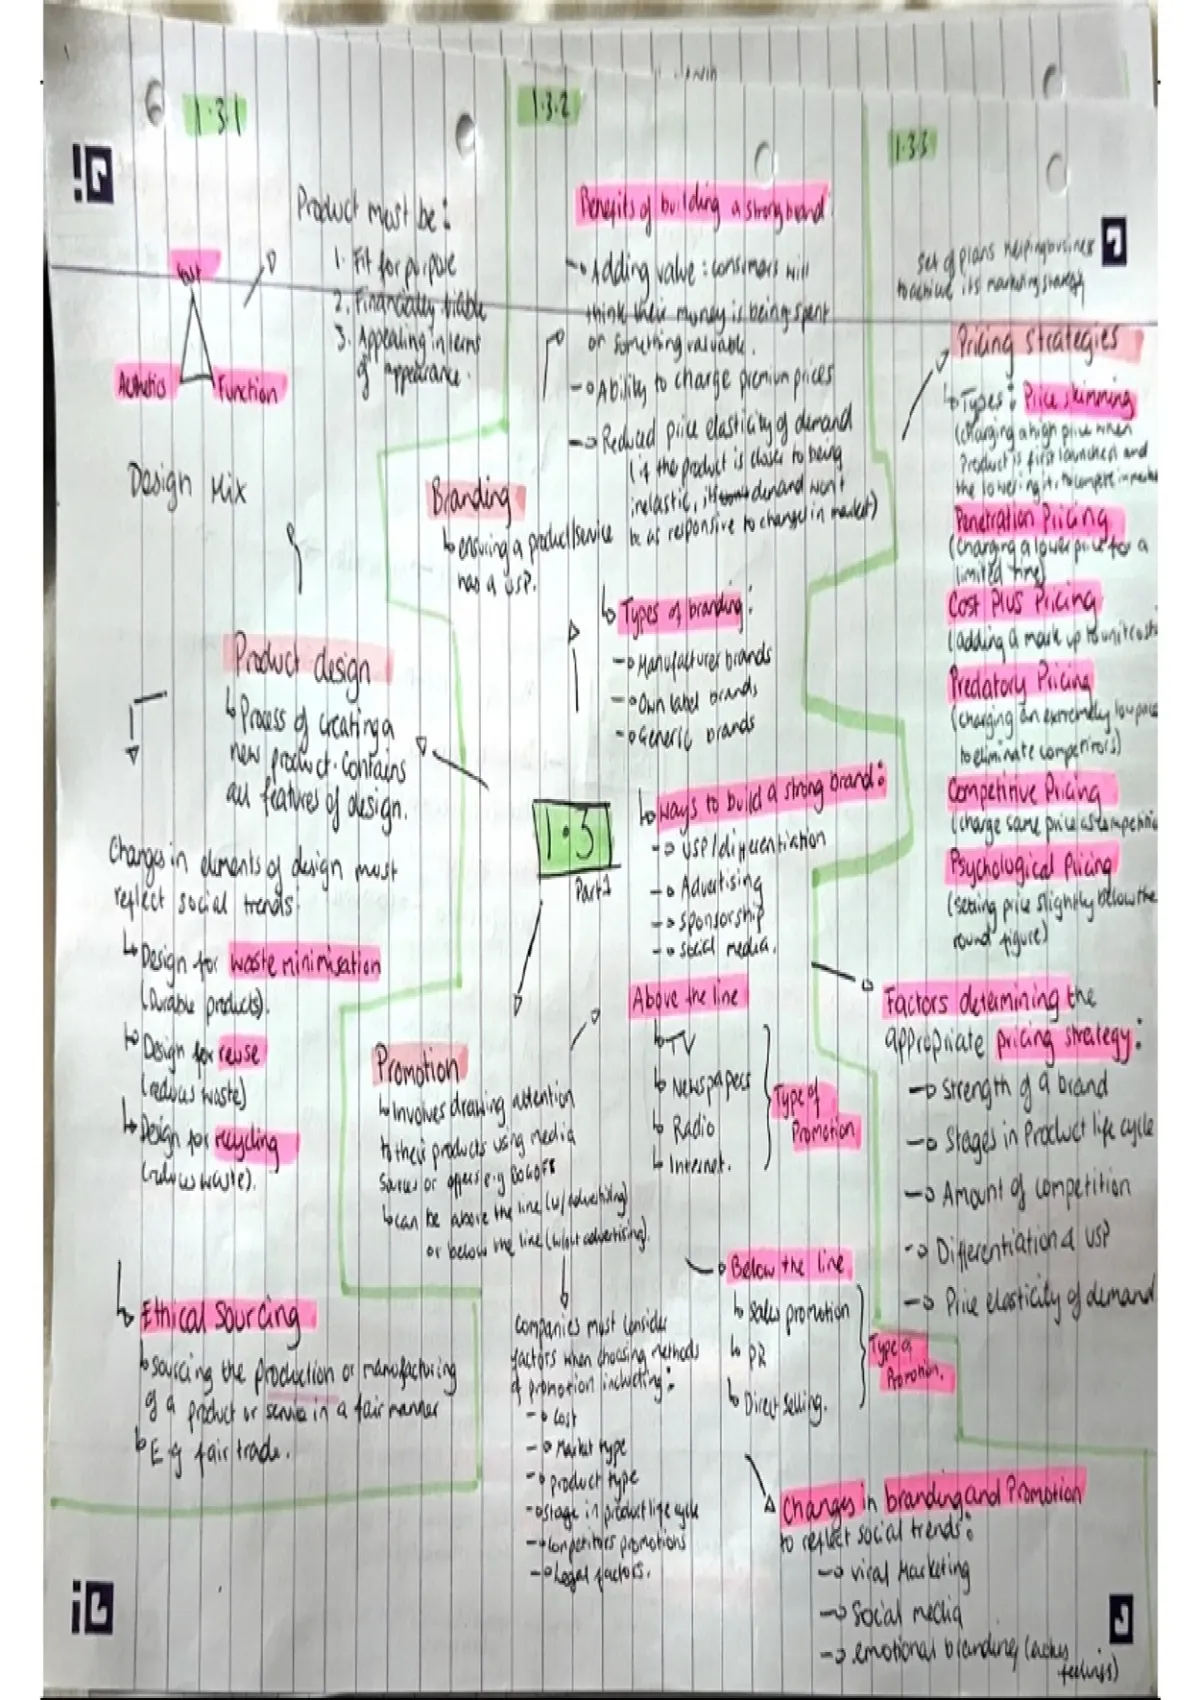 1.3.1
Product must be:
1. Fit for purpose
2. Financially viable
3. Appealing in terms
of appearance.
Cost
Aesthetics
Function
Design Mix
Product design
↳ Process of creating a
new product. Contains
all features of design.
Changes in elements of design must
reflect social trends.
↳ Design for waste minimisation
(Durable products).
↳ Design for reuse
(reduces waste)
↳ Design for recycling
(reduces waste).
↳ Ethical Sourcing
↳ sourcing the production or manufacturing
of a product or service in a fair manner
↳ E.g fair trade.
1.3.2
Benefits of building a strong brand
→ Adding value: consumers will
think their money is being spent
on something valuable.
→ Ability to charge premium prices
→ Reduced price elasticity of demand
(if the product is closer to being
inelastic, its demand won't
be as responsive to changes in market)
Branding
↳ ensuring a product/service
has a USP.
↳ Types of branding:
→ Manufacturer brands
→ Own label brands
→ Generic brands
1.3
Part 1
↳ Ways to build a strong brand:
→ USP/differentiation
→ Advertising
→ sponsorship
→ social media.
Promotion
↳ Involves drawing attention
to their products using media
sources or offers e.g BOGOFS
↳ can be above the line (w/advertising)
or below the line (w/out advertising).
Above the line
↳ TV
↳ Newspapers
↳ Radio
↳ Internet.
Type of
Promotion
→ Below the line
↳ Sales promotion
↳ PR
↳ Direct selling.
Type of
Promotion.
Companies must consider
factors when choosing methods
of promotion including:
→ Cost
→ Market type
→ product type
→ stage in product life cycle
→ Competitors promotions
→ Legal factors.
Changes in branding and Promotion
to reflect social trends:
→ viral Marketing
→ Social media
→ emotional branding (
feelings)
1.3.3
Set of plans helping business
to achieve its marketing strategy
Pricing Strategies
↳ Types: Price skimming
(charging a high price when
Product is first launched and
the lowering it, to compete in
Penetration Pricing
(charging a lower price for a
limited time)
Cost Plus Pricing
(adding a mark up to unit costs
Predatory Pricing
(charging an extremely low price
to eliminate competitors)
Competitive Pricing
(charge same price as
Psychological Pricing
(setting price slightly below the
round figure)
Factors determining the
appropriate pricing strategy:
→ Strength of a brand
→ Stages in Product life cycle
→ Amount of competition
→ Differentiation & USP
→ Price elasticity of demand